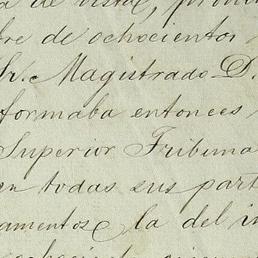 de vista, pronun
re de ochocientos
Sr. Magistrado D.
formaba entonces
Superior Tribuna
en todas sus part
amentos la del in